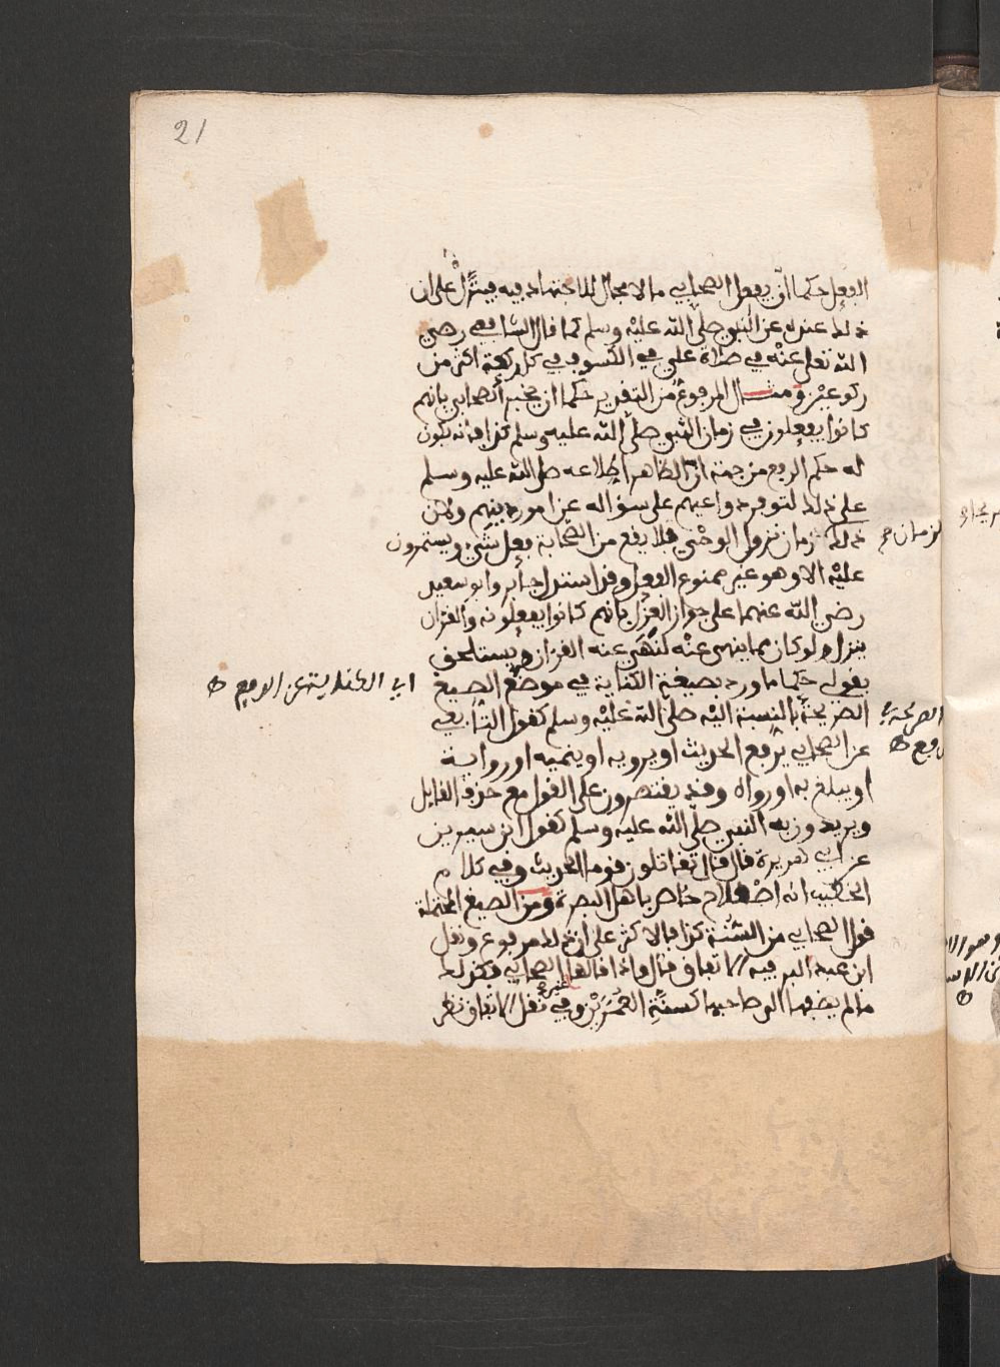 21
الفعل حكما ان يفعل الصحابي ما لا مجال للاجتهاد فيه فينزل على ان
ذلك عنده عن النبي صلى الله عليه وسلم كما قال الشافعي رضي
الله تعلى عنه في صلاة علي في الكسوف في كل ركعة اكثر من
ركوعين ومثال المرفوع من التقرير حكما ان يخبر الصحابي بانهم
كانوا يفعلون في زمان النبي صلى الله عليه وسلم كذا فانه يكون
له حكم الرفع من جهة ان الظاهر اطلاعه صلى الله عليه وسلم
على ذلك لتوفر دواعيهم على سؤاله عن امور دينهم ولان
ذلك الزمان زمان نزول الوحي فلا يقع من الصحابة فعل شيء ويستمرون
عليه الا وهو غير ممنوع الفعل وقد استدل جابر وابو سعيد
رضي الله عنهما على جواز العزل بانهم كانوا يفعلونه والقران
ينزل ولو كان مما ينهى عنه لنهى عنه القران ويستلحق
بقولي حكما ما ورد بصيغة الكناية في موضع الصيغ
اي الكناية عن الرفع ط
الصريحة بالنسبة اليه صلى الله عليه وسلم كقول التابعي
عن الصحابي يرفع الحديث او يرويه او ينميه او رواية
او يبلغ به او رواه وقد يقتصرون على القول مع حذف القايل
ويريدون به النبي صلى الله عليه وسلم كقول ابن سيرين
عن ابي هريرة قال قال تقاتلون قوما الحديث وفي كلام
الخطيب انه اصطلاح خاص باهل البصرة ومن الصيغ المحتملة
قول الصحابي من السنة كذا فالاكثر على ان ذلك مرفوع ونقل
ابن عبد البر فيه الاتفاق قال واذا قالها غير الصحابي فكذلك
ما لم يضفها الى صاحبها كسنة العمرين وفي نقل الاتفاق نظر